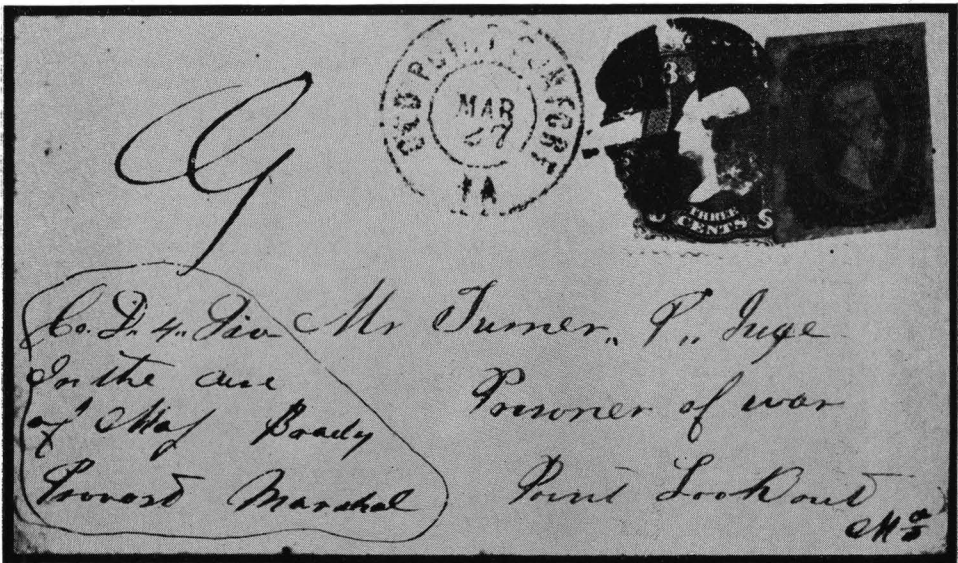 OLD POINT COMFORT
MAR
27
VA
3
THREE
CENTS
Co. D. 4. Div
In the care
of Maj Brady
Provost Marshal
Mr Turner,, P,,
Prisoner of war
Point Lookout
Md